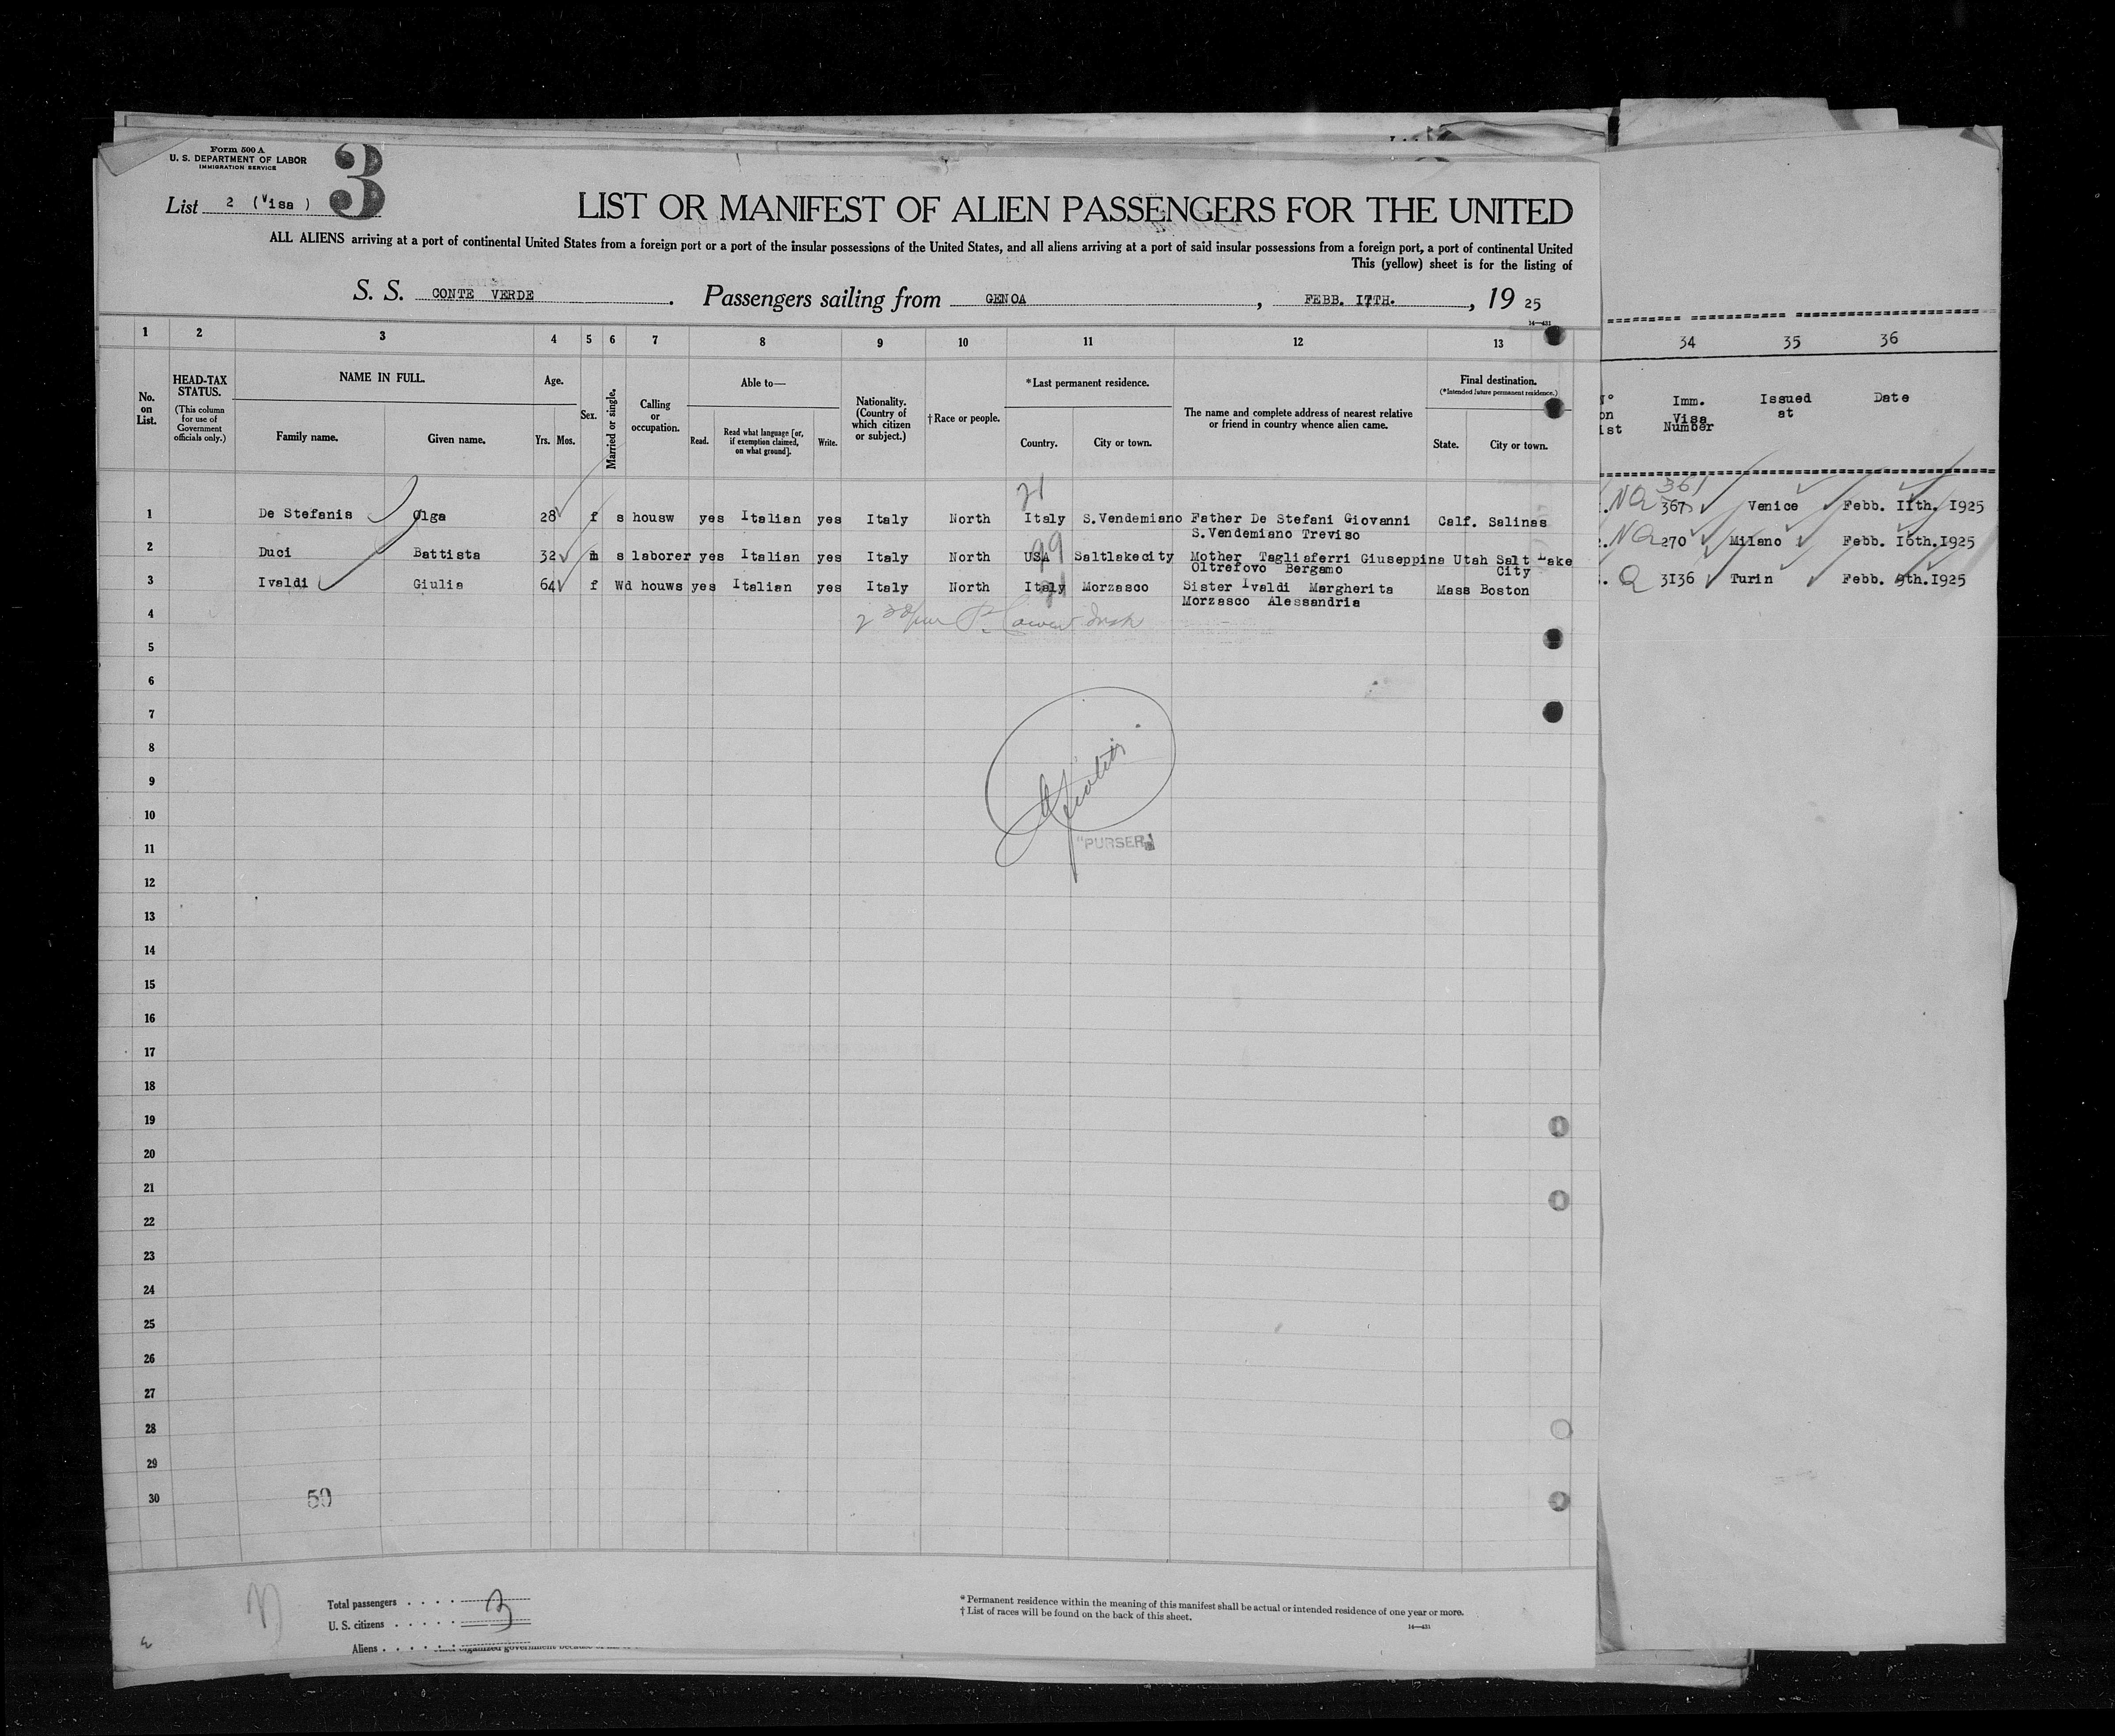 Form 500 A
U. S. DEPARTMENT OF LABOR
IMMIGRATION SERVICE
3
List 2 (Visa )
LIST OR MANIFEST OF ALIEN PASSENGERS FOR THE UNITED
ALL ALIENS arriving at a port of continental United States from a foreign port or a port of the insular possessions of the United States, and all aliens arriving at a port of said insular possessions from a foreign port, a port of continental United
This (yellow) sheet is for the listing of
S. S. CONTE VERDE. Passengers sailing from GENOA, FEBB. I7TH., 19 25
14—431
1 2 3 4 5 6 7 8 9 10 11 12 13 34 35 36
No. on List.
HEAD-TAX STATUS.
(This column for use of Government officials only.)
NAME IN FULL.
Family name. Given name.
Age.
Yrs. Mos.
Sex.
Married or single.
Calling or occupation.
Able to—
Read. Read what language [or, if exemption claimed, on what ground]. Write.
Nationality. (Country of which citizen or subject.)
†Race or people.
*Last permanent residence.
Country. City or town.
The name and complete address of nearest relative or friend in country whence alien came.
Final destination.
(*Intended future permanent residence.)
State. City or town.
Imm. Visa Number
Issued at
Date
361
1 De Stefanis Olga 28 f s housw yes Italian yes Italy North Italy S.Vendemiano Father De Stefani Giovanni Calf. Salinas NQ 367 Venice Febb. IIth. I925
21
S.Vendemiano Treviso
2 Duci Battista 32 m s laborer yes Italian yes Italy North USA Saltlakecity Mother Tagliaferri Giuseppina Utah Salt Lake NQ 270 Milano Febb. I6th.I925
99
Oltrefovo Bergamo City
3 Ivaldi Giulia 64 f Wd houws yes Italian yes Italy North Italy Morzasco Sister Ivaldi Margherita Mass Boston Q 3I36 Turin Febb. 9th.I925
Morzasco Alessandria
4
5
6
7
8
9
10
11
"PURSER"
12
13
14
15
16
17
18
19
20
21
22
23
24
25
26
27
28
29
30
50
Total passengers 3
U. S. citizens
Aliens
*Permanent residence within the meaning of this manifest shall be actual or intended residence of one year or more.
†List of races will be found on the back of this sheet.
14—431